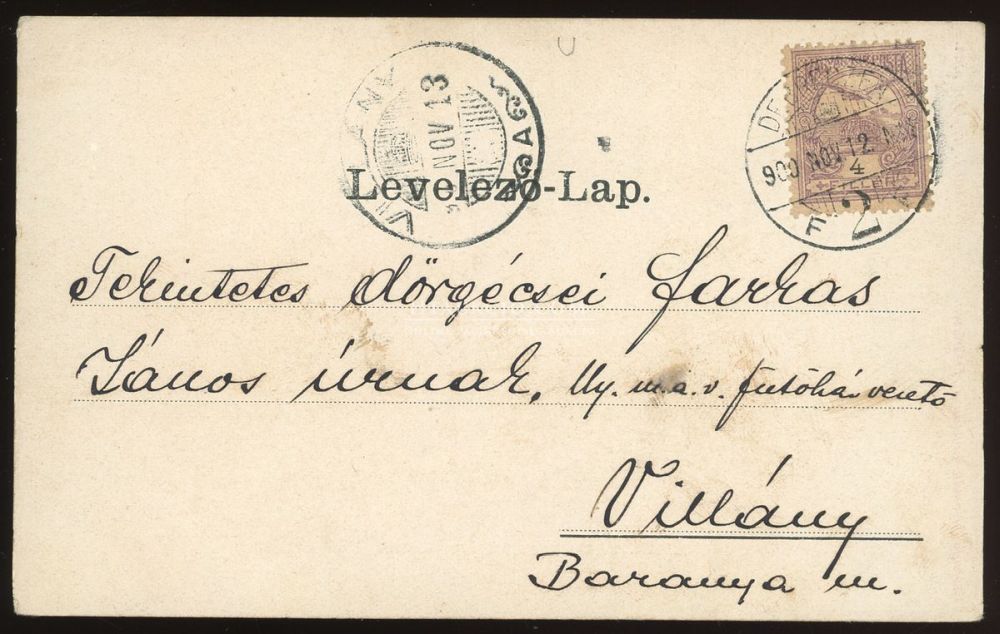 VILLÁNY
NOV 13
900 NOV 12
4
F 2
Levelező-Lap.
Tekintetes dörgécsei farkas
János úrnak, Ny. m.a.v. fűtőház vezető
Villány
Baranya m.